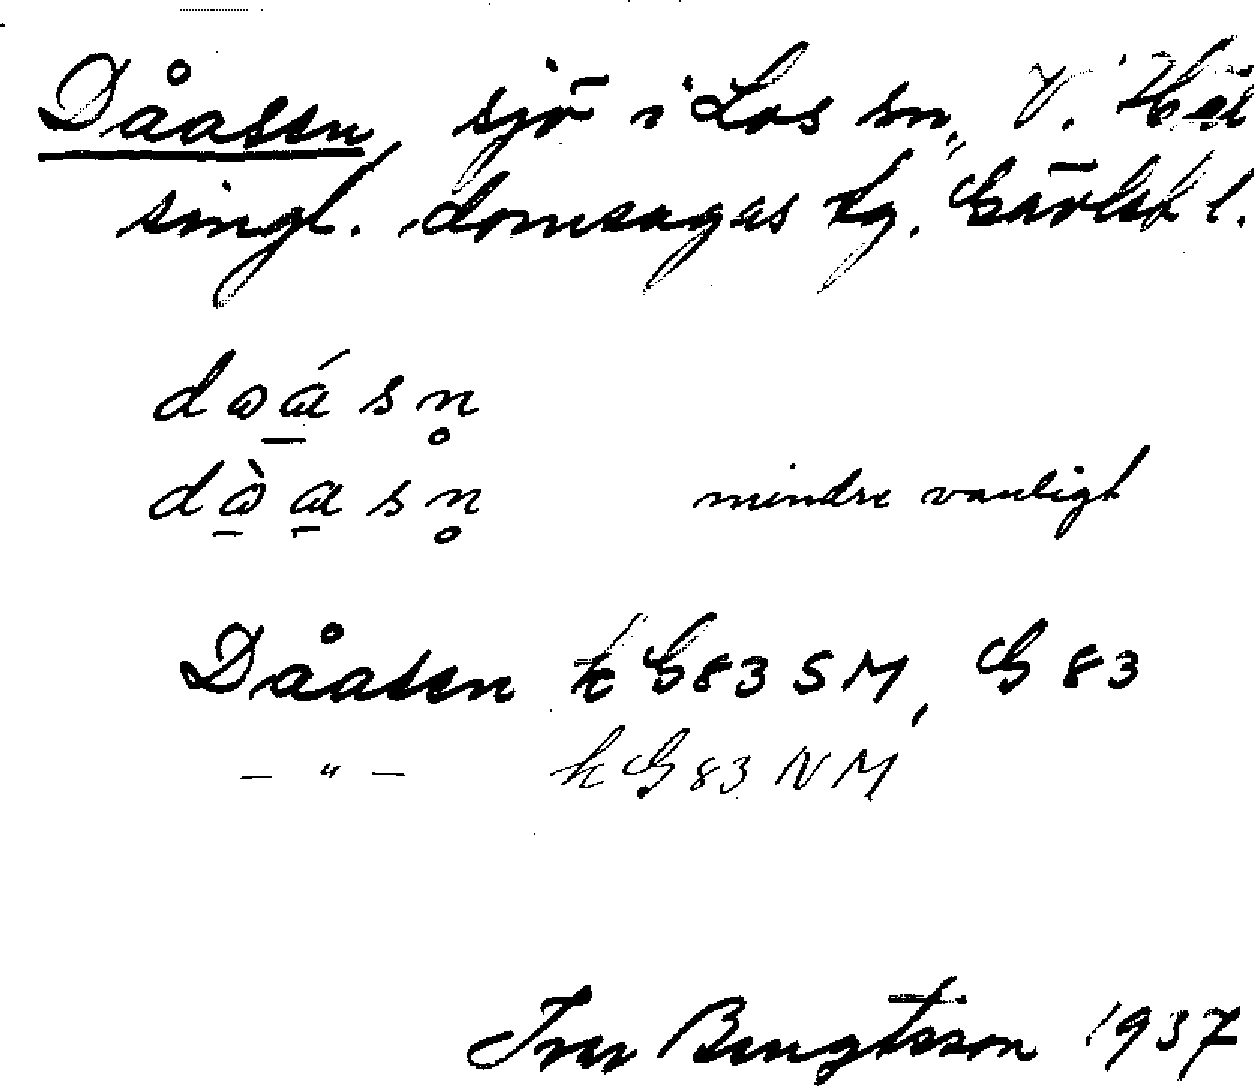 Dåasen, sjö i Los sn, V. Häl
singl. domsagas tg. Gävlebg l.
dɷɑ́sn̥
dɷ̀ɑsn̥ mindre vanligt
Dåasen kG83SM, G83
— " — kG83NM
Ivar Bengtsson 1937